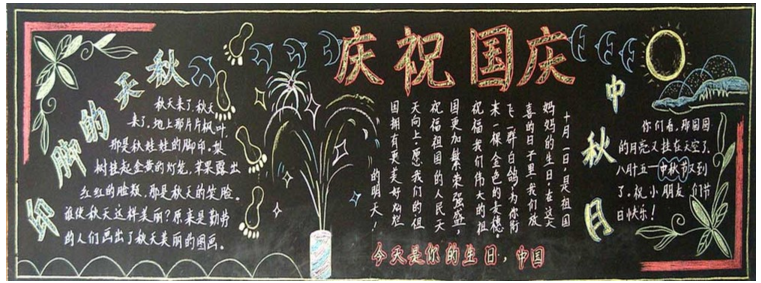 秋天的脚印
秋天来了,秋天
来了,地上那片片枫叶,
那是秋娃娃的脚印,梨
树挂起金黄的灯笼,苹果露出
红红的脸颊,那是秋天的笑脸。
谁使秋天这样美丽?原来是勤劳
的人们画出了秋天美丽的图画。
庆祝国庆
十月一日是祖国
妈妈的生日,在这天
喜的日子里我们放
飞一群白鸽为你衔
来一棵金色的麦穗,
祝福我们伟大的祖
国更加繁荣强盛,
祝福祖国的人民天
天向上,愿我们的祖
国拥有更美好灿烂
的明天!
今天是你的生日,中国
中秋月
你们看,那圆圆
的月亮又挂在天空了,
八月十五——中秋节又到
了,祝小朋友们节
日快乐!